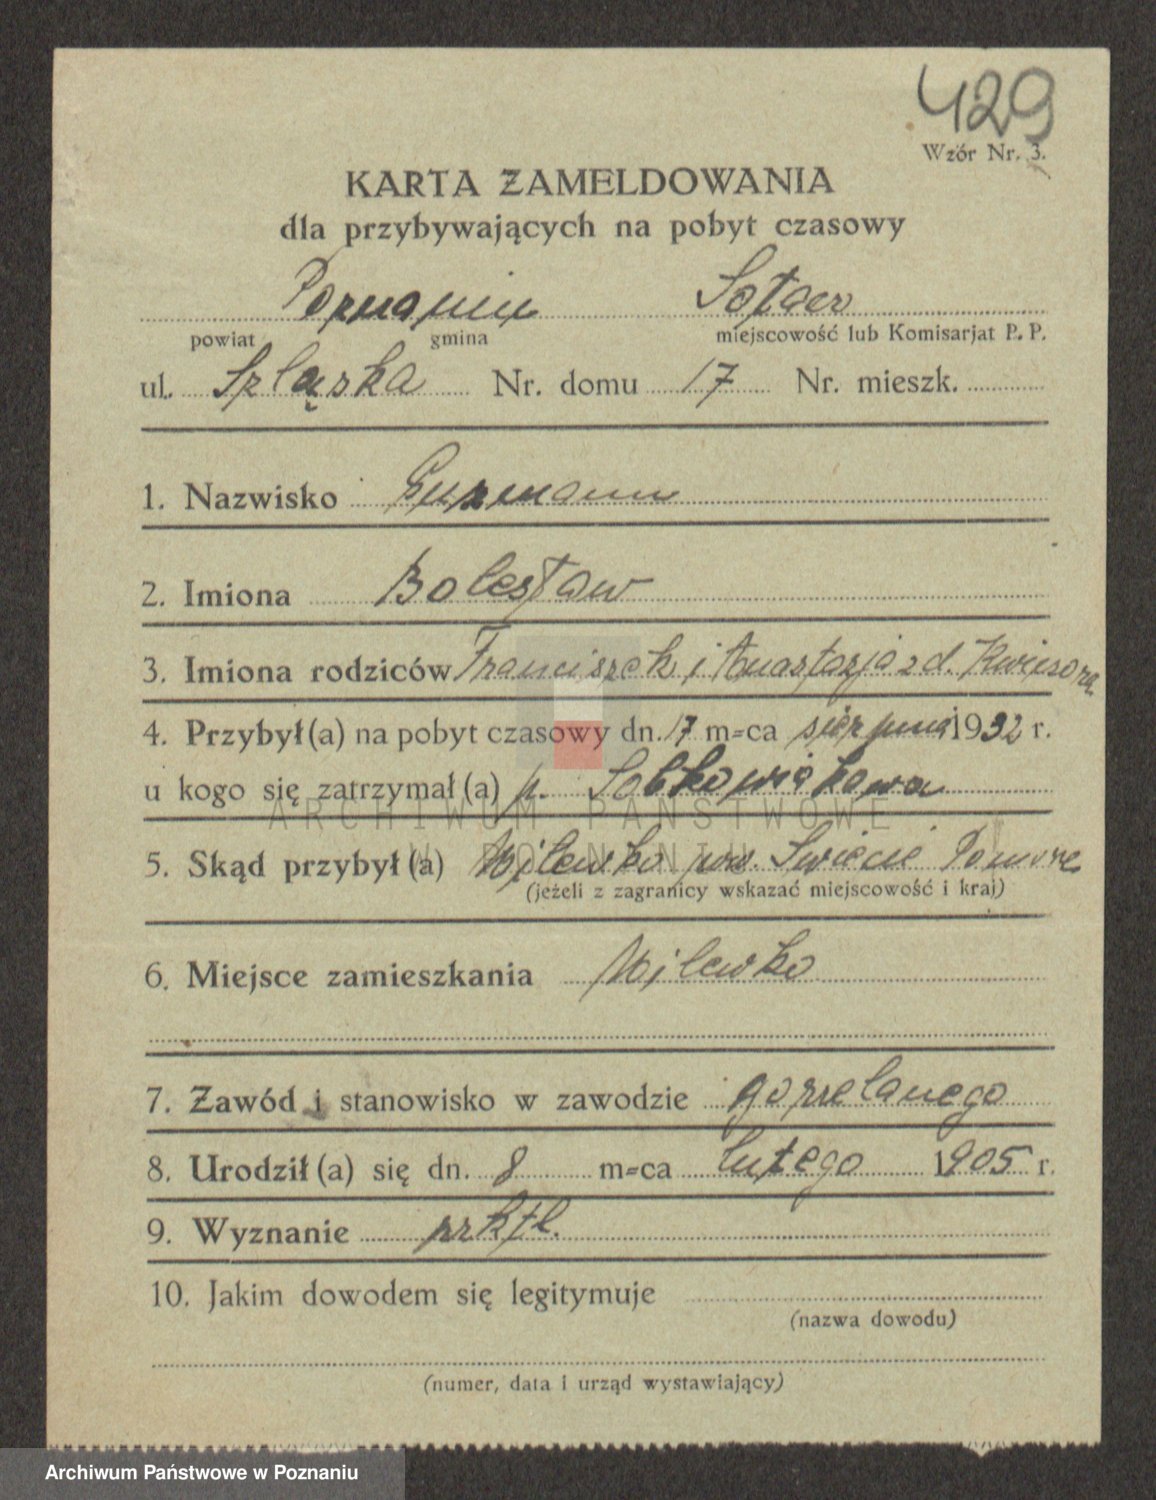 429
Wzór Nr. 3.
KARTA ZAMELDOWANIA
dla przybywających na pobyt czasowy
Poznaniu Sołacz
powiat gmina miejscowość lub Komisarjat P. P.
ul. Szląska Nr. domu 17 Nr. mieszk.
1. Nazwisko
2. Imiona Bolesław
3. Imiona rodziców Franciszek i Anastazja z d.
4. Przybył(a) na pobyt czasowy dn. 17 m-ca sierpnia 1932 r.
u kogo się zatrzymał(a) p. Sobkowiakowa
ARCHIWUM PAŃSTWOWE
W POZNANIU
5. Skąd przybył(a) Wilewko pow. Świecie Pomorze
(jeżeli z zagranicy wskazać miejscowość i kraj)
6. Miejsce zamieszkania Wilewko
7. Zawód i stanowisko w zawodzie gorzelanego
8. Urodził(a) się dn. 8 m-ca lutego 1905 r.
9. Wyznanie rzktl.
10. Jakim dowodem się legitymuje
(nazwa dowodu)
(numer, data i urząd wystawiający)
Archiwum Państwowe w Poznaniu